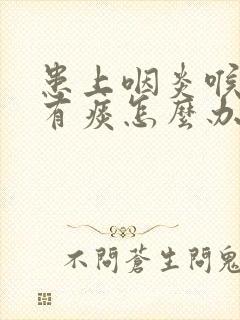 患上咽炎喉
有痰怎麼办
不問蒼生問鬼